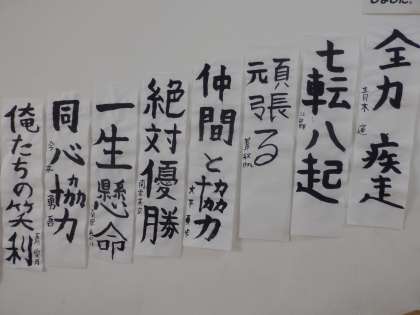 全力疾走
七転八起
頑張る
仲間と協力
絶対優勝
一生懸命
同心協力
俺たちの笑利